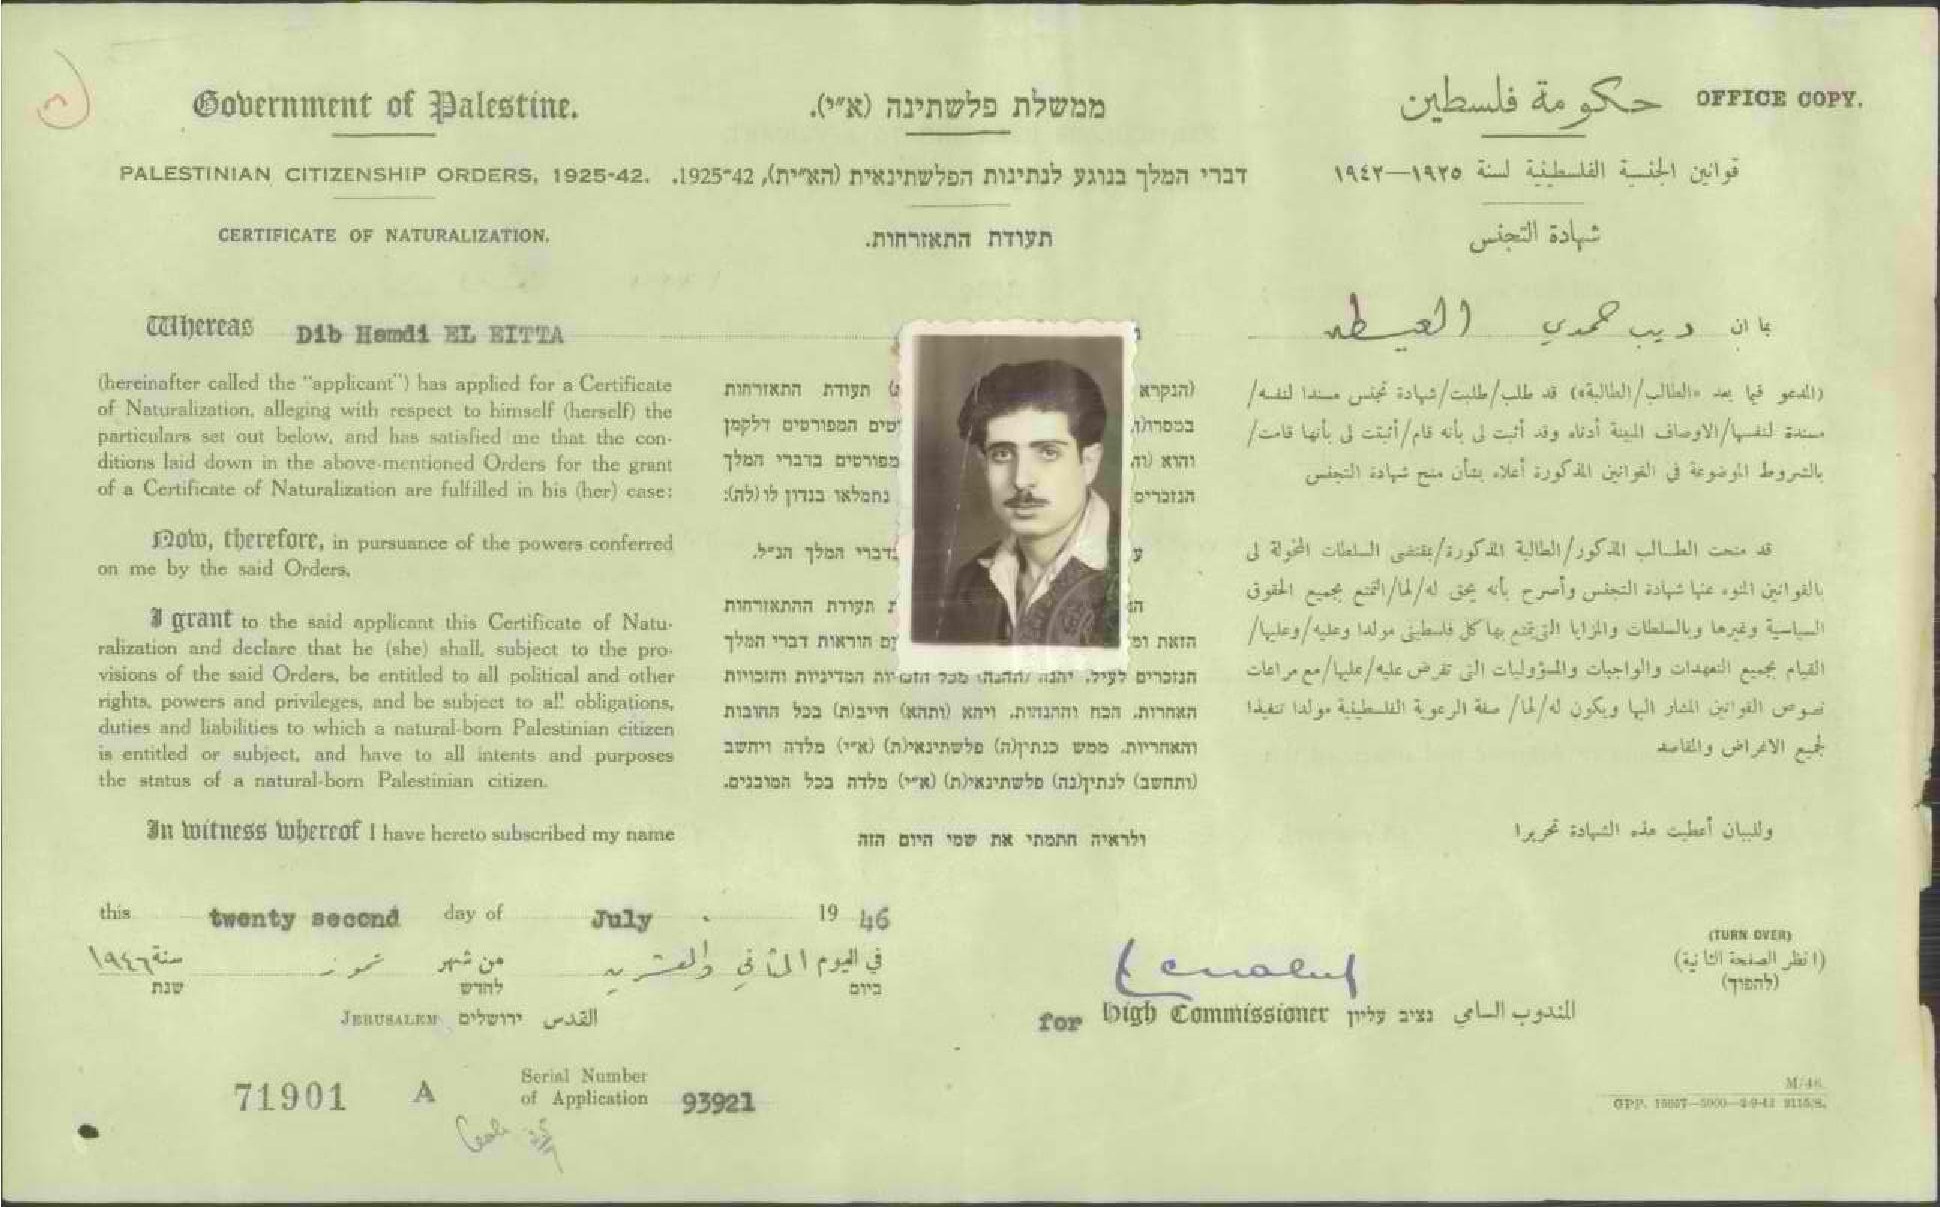 Government of Palestine.
PALESTINIAN CITIZENSHIP ORDERS, 1925-42.
CERTIFICATE OF NATURALIZATION.
ממשלת פלשתינה (א״י).
דברי המלך בנוגע לנתינות הפלשתינאית (הא״ית), 1925-42.
תעודת התאזרחות.
حكومة فلسطين
OFFICE COPY.
قوانين الجنسية الفلسطينية لسنة ١٩٢٥—١٩٤٢
شهادة التجنس
Whereas Dib Hamdi EL EITTA
(hereinafter called the “applicant”) has applied for a Certificate
of Naturalization, alleging with respect to himself (herself) the
particulars set out below, and has satisfied me that the con-
ditions laid down in the above-mentioned Orders for the grant
of a Certificate of Naturalization are fulfilled in his (her) case:
Now, therefore, in pursuance of the powers conferred
on me by the said Orders,
I grant to the said applicant this Certificate of Natu-
ralization and declare that he (she) shall, subject to the pro-
visions of the said Orders, be entitled to all political and other
rights, powers and privileges, and be subject to all obligations,
duties and liabilities to which a natural-born Palestinian citizen
is entitled or subject, and have to all intents and purposes
the status of a natural-born Palestinian citizen.
In witness whereof I have hereto subscribed my name
(הנקרא תעודת התאזרחות
המפורטים דלקמן
והוא מפורטים בדברי המלך
הנזכרים נתמלאו בנדון לו (לה):
בדברי המלך הנ״ל.
תעודת ההתאזרחות
הזאת הוראות דברי המלך
הנזכרים לעיל, יהנה (תהנה) מכל הזכויות המדיניות והזכויות
האחרות, הכח וההנחות, ויהא (ותהא) חייב(ת) בכל החובות
והאחריות, ממש כנתין(ה) פלשתינאי(ת) (א״י) מלדה ויחשב
(ותחשב) לנתין(נה) פלשתינאי(ת) (א״י) מלדה בכל המובנים.
ולראיה חתמתי את שמי היום הזה
بما ان ديب حمدي العيطه
(المدعو فيما بعد «الطالب/الطالبة») قد طلب/طلبت/شهادة تجنس مسندا لنفسه/
مسندة لنفسها/الاوصاف المبينة أدناه وقد أثبت لى بأنه قام/أثبتت لى بأنها قامت/
بالشروط الموضوعة في القوانين المذكورة أعلاه بشأن منح شهادة التجنس
قد منحت الطالب المذكور/الطالبة المذكورة/بمقتضى السلطات المخولة لى
بالقوانين المنوه عنها شهادة التجنس وأصرح بأنه يحق له/لها/التمتع بجميع الحقوق
السياسية وغيرها وبالسلطات والمزايا التى يتمتع بها كل فلسطينى مولدا وعليه/وعليها/
القيام بجميع التعهدات والواجبات والمسؤوليات التى تفرض عليه/عليها/مع مراعات
نصوص القوانين المشار اليها ويكون له/لها/ صفة الرعوية الفلسطينية مولدا تنفيذا
لجميع الاغراض والمقاصد
وللبيان أعطيت هذه الشهادة تحريرا
this twenty second day of July . 19 46
في اليوم الثاني والعشرين من شهر تموز سنة ١٩٤٦
ביום לחדש שנת
JERUSALEM ירושלים القدس
for High Commissioner נציב עליון المندوب السامي
(TURN OVER)
(انظر الصفحة الثانية)
(להפוך)
71901 A
Serial Number
of Application 93921
M/48.